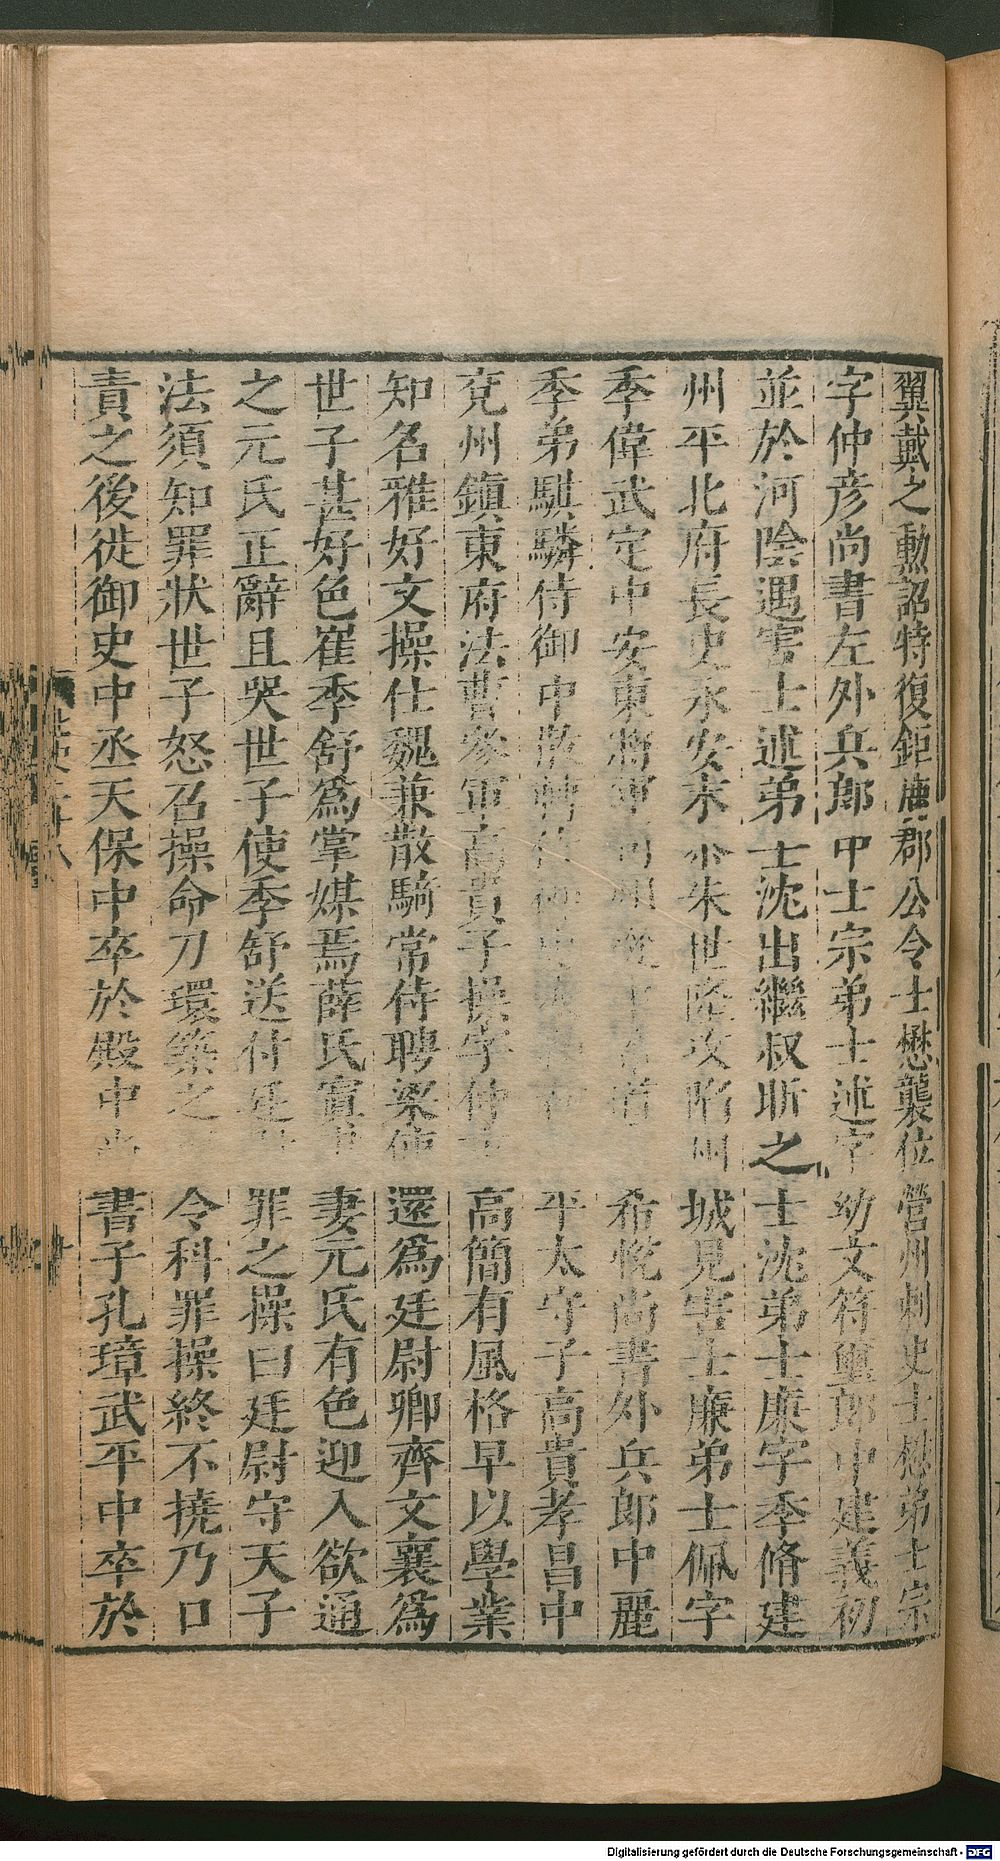 翼戴之勲詔特復鉅鹿郡公令士懋襲位營州刺史士懋弟士宗
字仲彥尚書左外兵郎中士宗弟士述字幼文符璽郎中建義初
並於河陰遇害士述弟士沈出繼叔昕之士沈弟士廉字季脩建
州平北府長史永安末尒朱世隆攻陷州城見害士廉弟士佩字
季偉武定中安東將軍 希悅尚書外兵郎中麗
季弟騏驎侍御中散轉 平太守子高貴孝昌中
兗州鎮東府法曹參軍高貴子操字仲 高簡有風格早以學業
知名雅好文操仕魏兼散騎常侍聘梁使還為廷尉卿齊文襄為
世子甚好色崔季舒為掌媒焉薛氏寘 妻元氏有色迎入欲通
之元氏正辭且哭世子使季舒送付廷 罪之操曰廷尉守天子
法須知罪狀世子怒召操命刀環築之 令科罪操終不撓乃口
責之後徙御史中丞天保中卒於殿中尚書子孔璋武平中卒於
Digitalisierung gefördert durch die Deutsche Forschungsgemeinschaft - DFG